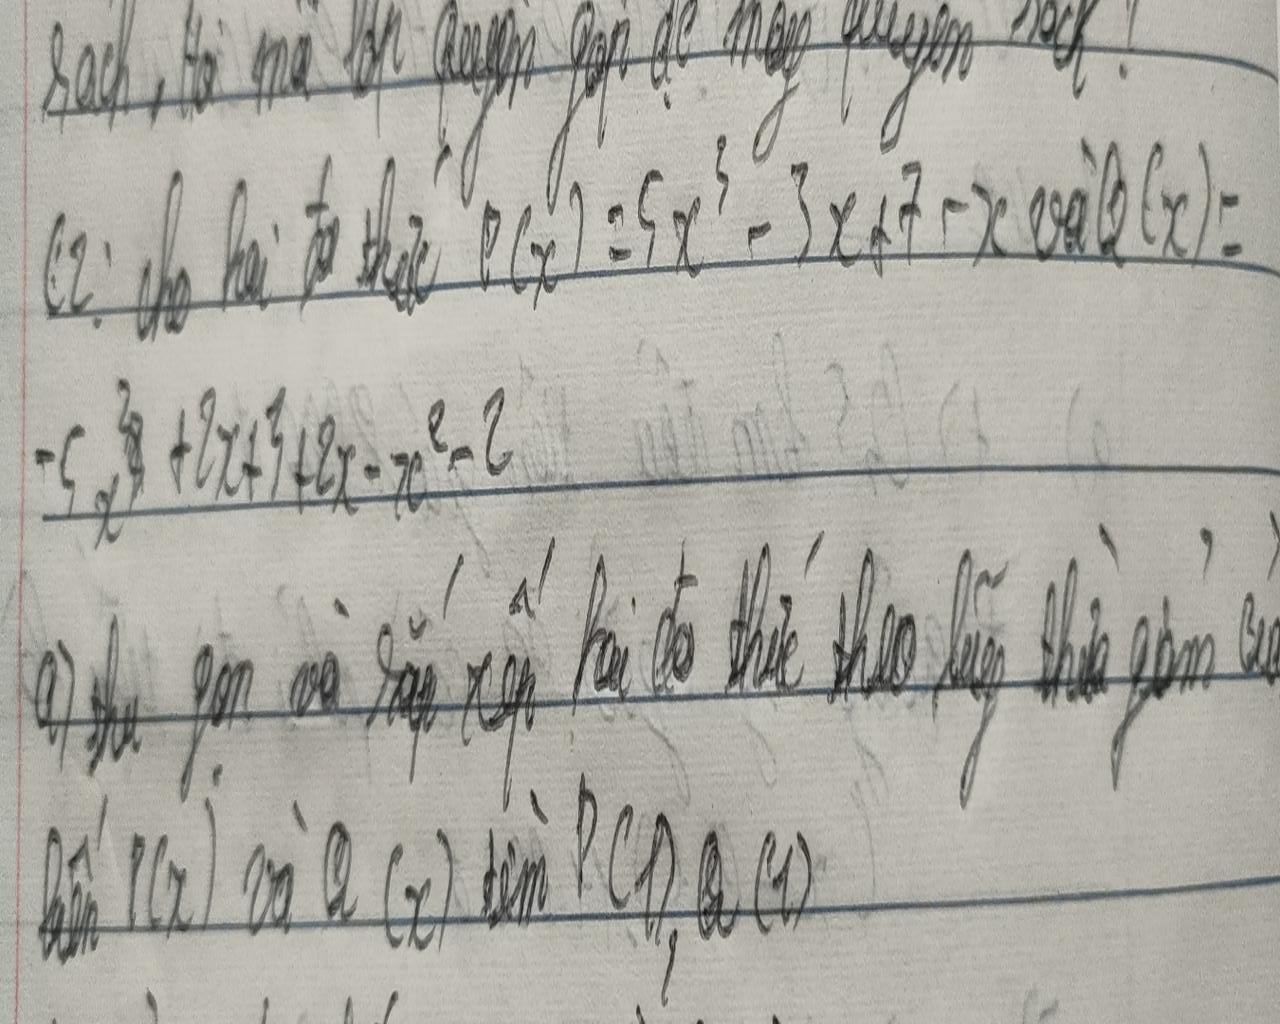 sách, Hỏi mỗi lớp quyên góp đc mấy quyển sách?
C2: cho hai đa thức P(x) = 5x³ - 3x + 7 - x và Q(x) =
-5x³ + 2x + 3 + 2x - x² - 2
a) thu gọn và sắp xếp hai đa thức theo lũy thừa giảm của
biến P(x) và Q(x) tìm P(1), Q(1)